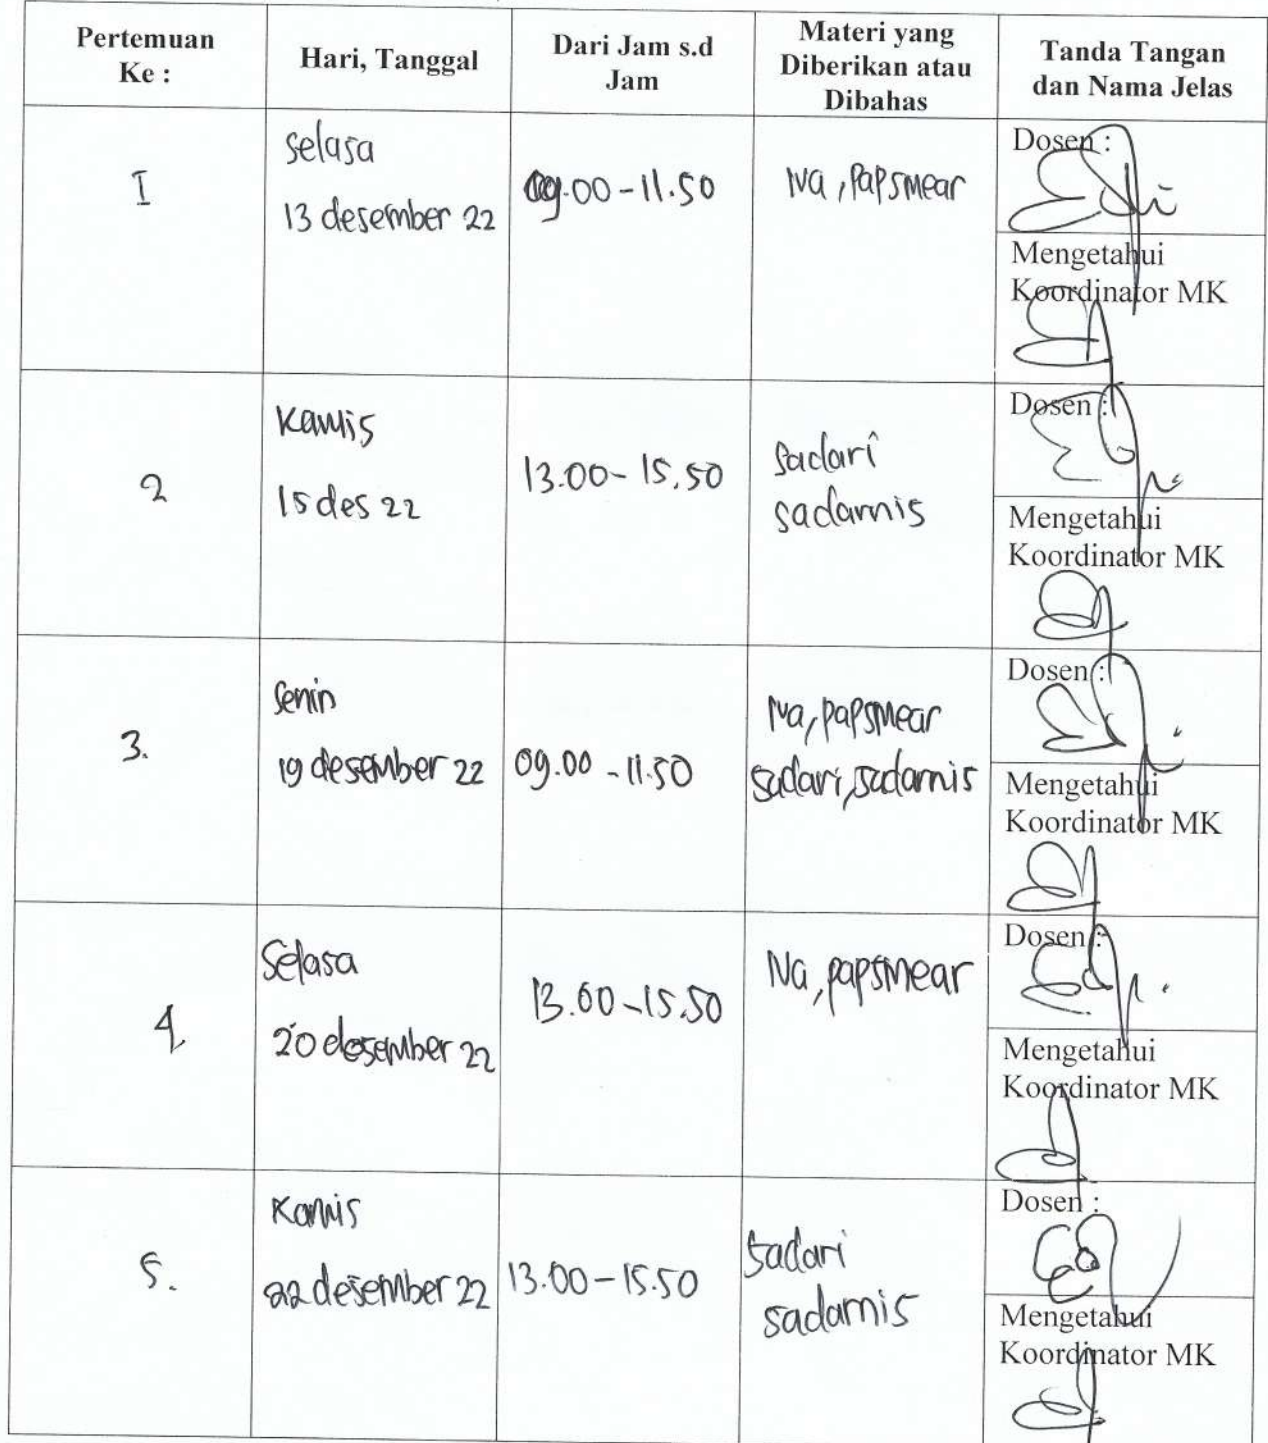 Pertemuan
Ke :
Hari, Tanggal
Dari Jam s.d
Jam
Materi yang
Diberikan atau
Dibahas
Tanda Tangan
dan Nama Jelas
I
Selasa
13 desember 22
09.00 - 11.50
Iva, Papsmear
Dosen :
Mengetahui
Koordinator MK
2
Kamis
15 des 22
13.00 - 15.50
Sadari
sadarnis
Dosen :
Mengetahui
Koordinator MK
3.
Senin
19 desember 22
09.00 - 11.50
Iva, papsmear
sadari, sadarnis
Dosen :
Mengetahui
Koordinator MK
4.
Selasa
20 desember 22
13.00 - 15.50
Iva, papsmear
Dosen :
Mengetahui
Koordinator MK
5.
Kamis
22 desember 22
13.00 - 15.50
Sadari
sadarnis
Dosen :
Mengetahui
Koordinator MK